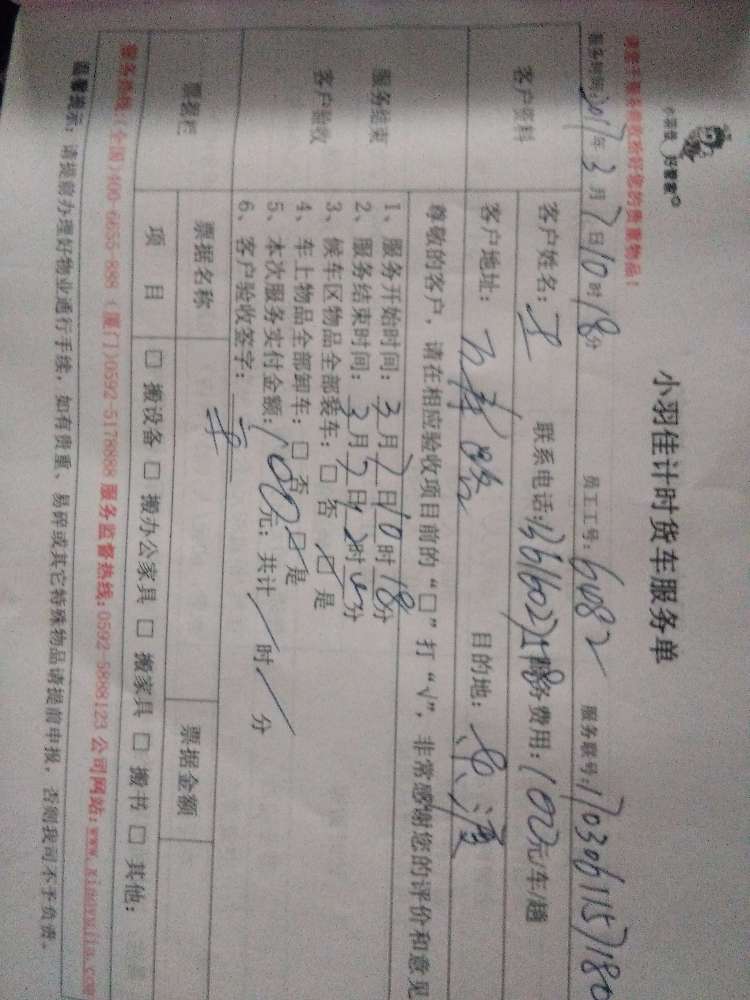 小羽佳 好管家
小羽佳计时货车服务单
请您于服务前收拾好您的贵重物品！
服务时间：2017年3月7日10时18分 员工工号：6082 服务联号：1703061157180
客户资料
客户姓名：王 联系电话： 服务费用：100元/车/趟
客户地址： 目的地：
服务结束
客户验收
尊敬的客户，请在相应验收项目前的“□”打“√”，非常感谢您的评价和意见
1、服务开始时间：3月7日10时18分
2、服务结束时间：3月7日12时 分
3、候车区物品全部装车：□ 否 ☑ 是
4、车上物品全部卸车：□ 否 ☑ 是
5、本次服务实付金额：100元；共计/时/分
6、客户验收签字：
票据栏
票据名称 票据金额
项 目 □ 搬设备 □ 搬办公家具 □ 搬家具 □ 搬书 □ 其他：
服务热线：(全国)400-6655-888 (厦门)0592-5178888 服务监督热线：0592-5888123 公司网站：www.xiaoyujia.com
温馨提示：请提前办理好物业通行手续，如有贵重、易碎或其它特殊物品请提前申报，否则我司不予负责。